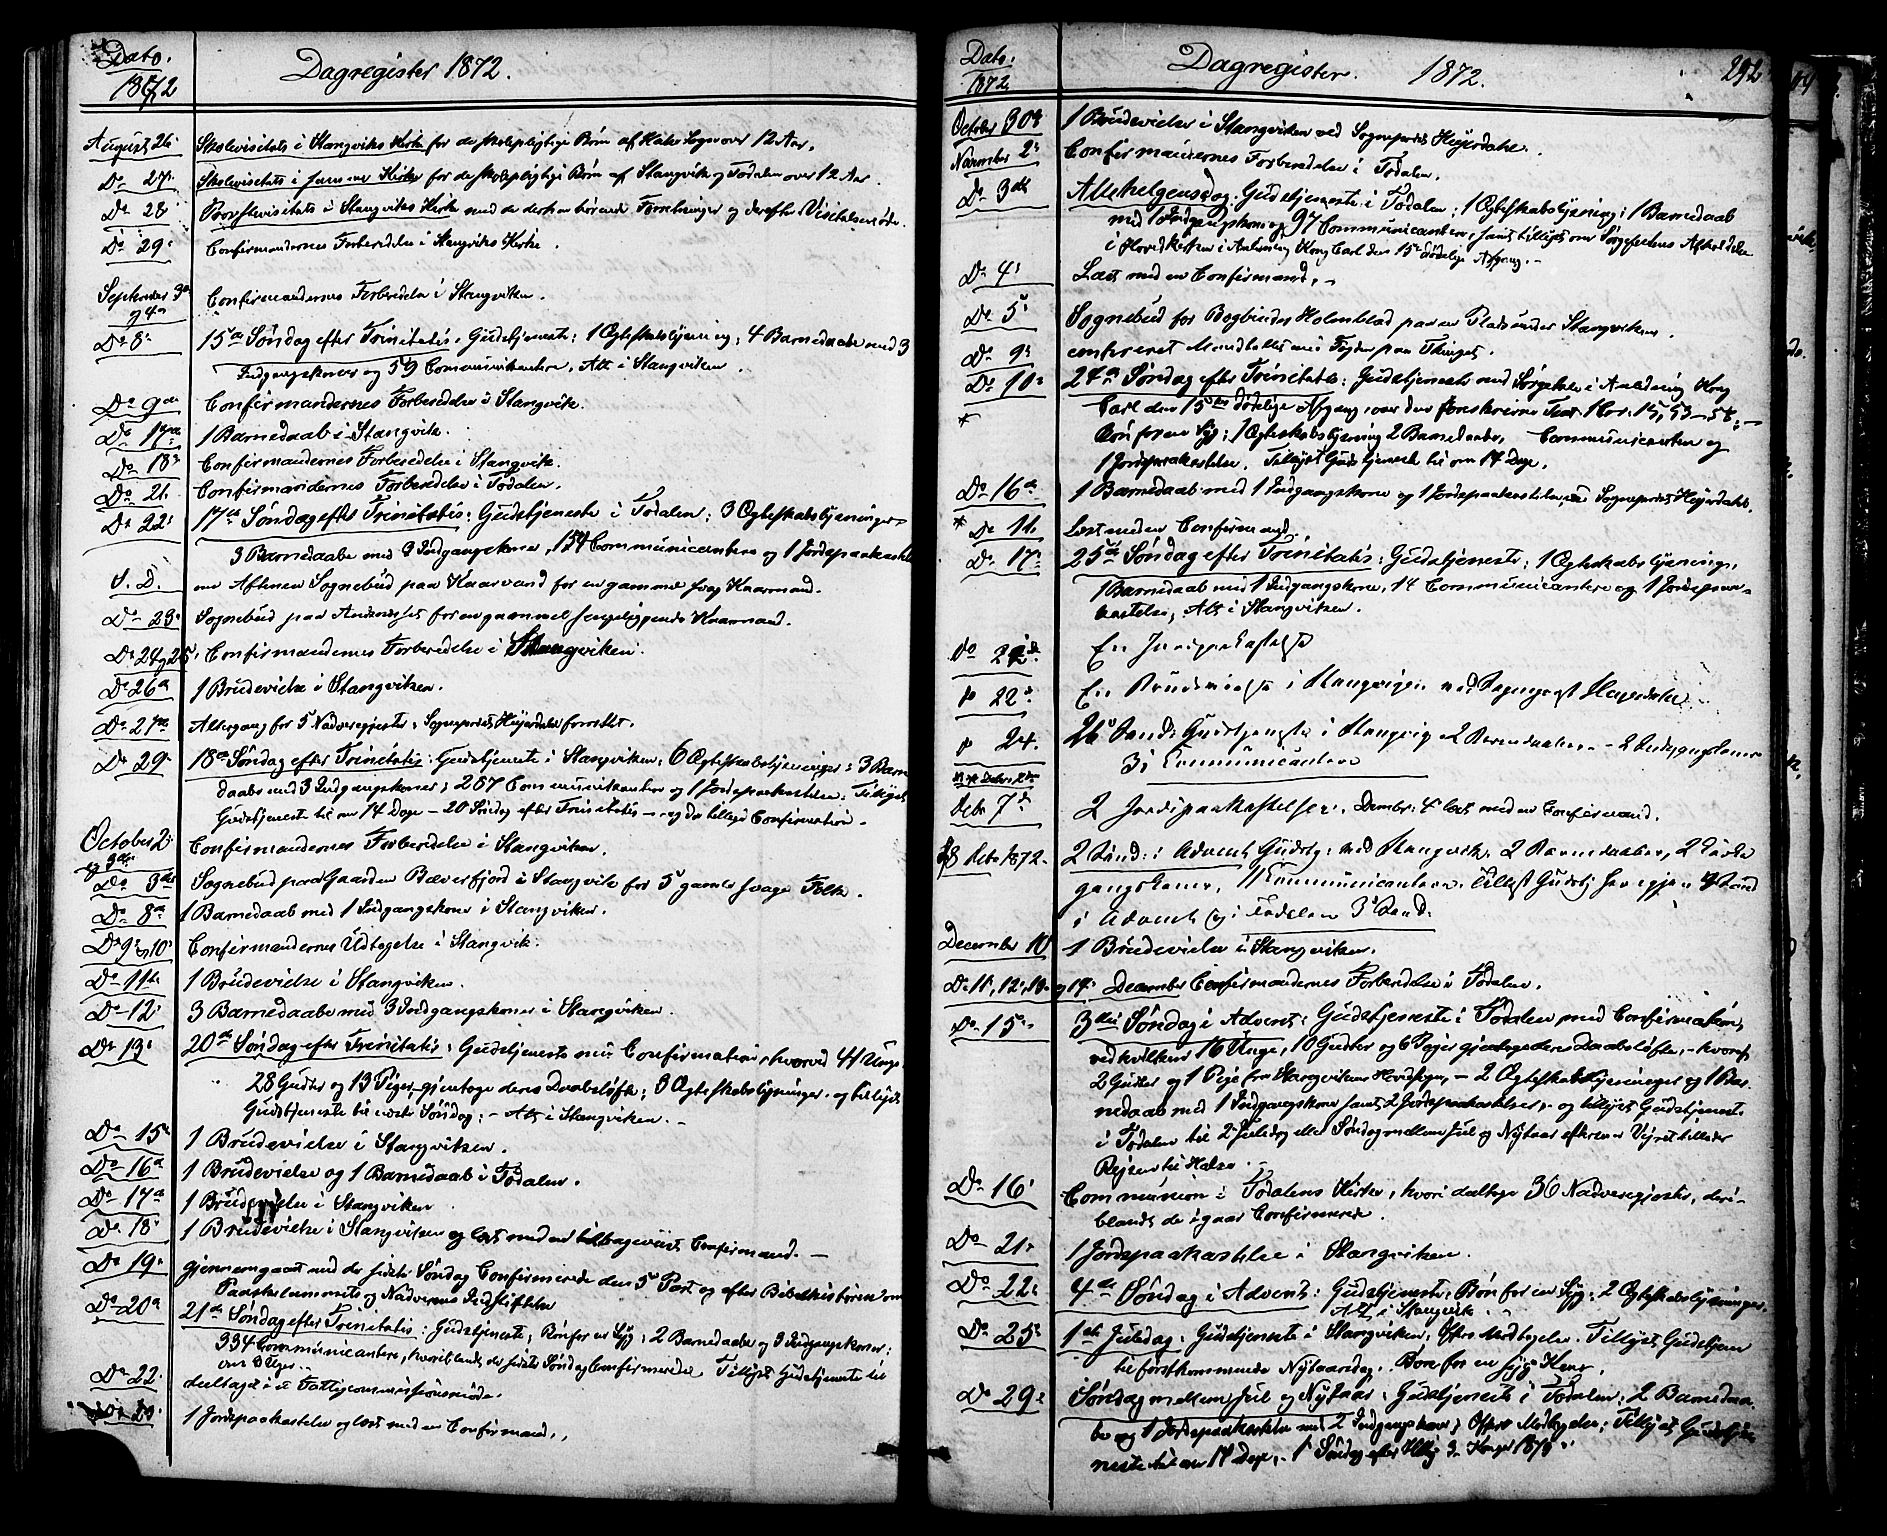 Dato.
1872
Dagregister 1872.
August 26. Skolevisitats i Stangviks Kirke for de skolepligtige Børn af Halse Sogn over 12 Aar.
Do 27. Skolevisitats i samme Kirke for de skolepligtige Børn af Stangvik og Todalen over 12 Aar.
Do 28. Provstevisitats i Stangviks Kirke med de dertil hørende Forretninger og derefter Visitatsmøde.
Do 29. Confirmandernes Forberedelse i Stangviks Kirke.
September 3die
og 4de Confirmandernes Forberedelse i Stangviken.
Do 8. 15de Søndag efter Trinitatis. Gudstjeneste; 1 Ægteskabslysning; 4 Barnedaabe med 3
Indgangskoner og 59 Communikantere, Alt i Stangviken.
Do 9de Confirmandernes Forberedelse i Stangvik.
Do 17de 1 Barnedaab i Stangvik.
Do 18. Confirmandernes Forberedelse i Stangvik.
Do 21. Confirmandernes Forberedelse i Todalen.
Do 22. 17de Søndag efter Trinitatis: Gudstjeneste i Todalen; 3 Ægteskabslysninger
3 Barnedaabe med 3 Indgangskoner, 154 Communicantere og 1 Jordspaakastelse
S. D. om Aftenen Sognebud paa Kaarvand for en gammel svag Kaarmand.
Do 23. Sognebud paa for en gammel sengeliggende Kaarmand.
Do 24 og 25. Confirmandernes Forberedelse i Stangviken.
Do 26de 1 Brudevielse i Stangviken.
Do 27de Altergang for 5 Nadveregjester; Sognepræst Heyerdahl forrettet.
Do 29. 18de Søndag efter Trinitatis: Gudstjeneste i Stangviken; 6 Ægteskabslysninger; 3 Barne
daabe med 3 Indgangskoner; 267 Communikantere og 1 Jordspaakastelse; Tillyst
Gudstjeneste til om 14 Dage – 20 Søndag efter Trinitatis – og da tillige Confirmation.
October 2.
og 3die Confirmandernes Forberedelse i Stangviken.
Do 3die Sognebud paa Gaarden Bæverfjord i Stangvik for 5 gamle svage Folk.
Do 8de 1 Barnedaab med 1 Indgangskone i Stangviken.
Do 9. og 10. Confirmandernes Udtagelse i Stangvik.
Do 11te 1 Brudevielse i Stangviken.
Do 12. 3 Barnedaabe med 3 Indgangskoner i Stangviken.
Do 13. 20de Søndag efter Trinitatis; Gudstjeneste med Confirmation, hvorved 41 Unge
28 Gutter og 13 Piger gjentoge deres Daabsløfte; 3 Ægteskabslysninger og tillyst
Gudstjeneste til næste Søndag; – Alt i Stangviken. –
Do 15. 1 Brudevielse i Stangviken.
Do 16de 1 Brudevielse og 1 Barnedaab i Todalen.
Do 17de 1 Brudevielse i Stangviken.
Do 18. 1 Brudevielse i Stangviken og læst med en tilbagevist Confirmand. –
Do 19. gjennemgaaet med de sidste Søndag Confirmerede den 5te Part og efter Bibelhistorien om
Paaskelammets og Nadverens Indstiftelse
Do 20de 21de Søndag efter Trinitatis: Gudstjeneste; Bøn for en Syg; 2 Barnedaabe og 3 Indgangskoner;
334 Communicantere, hvoriblandt de sidste Søndag Confirmerede Tillyst Gudstjeneste til
om 3 Uger.
Do 22. deeltaget i et Fattigcommissionsmøde.
1 Jordspaakastelse og læst med en Confirmand.
Dato.
1872
Dagregister. 1872. 292.
October 30te 1 Brudevielse i Stangviken ved Sognepræst Heyerdahl.
November 2. Confirmandernes Forberedelse i Todalen.
Do 3die Allehelgensdag. Gudstjeneste i Todalen; 1 Ægteskabslysning; 1 Barnedaab
med 1 Indgangskone og 97 Communicantere, samt tillyst om Sørgefestens Afholdelse
i Hovedkirken i Anledning Kong Carl den 15des dødelige Afgang. –
Do 4. Læst med en Confirmand. –
Do 5. Sognebud for Bogbinder Holmblad paa en Plads under Stangviken.
Do 9. confereret Mandtallet med Fogden paa Thinget.
Do 10. 24de Søndag efter Trinitatis: Gudstjeneste med Sørgetale i Anledning Kong
Carl den 15des dødelige Afgang, over den foreskrevne Text 1 Cor. 15, 53–58; –
* Bøn for en Syg; 1 Ægteskabslysning 2 Barnedaabe, Communicantere og
1 Jordspaakastelse. Tillyst Gudstjeneste til om 14 Dage.
Do 16de 1 Barnedaab med 1 Indgangskone og 1 Jordspaakastelse ved Sognepræst Heyerdahl.
* Do 11. Læst med en Confirmand.
Do 17. 25de Søndag efter Trinitatis: Gudstjeneste; 1 Ægteskabslysning;
1 Barnedaab med 1 Indgangskone, 14 Communicantere og 1 Jordspaa-
kastelse, Alt i Stangviken.
Do En Jordpaakastelse
Do 22. En Brudevielse i Stangvigen ved Sognepræst Heyerdahl
Do 24. 26. Sønd: Gudstjeneste i Stangvig 2 Barnedaaber – 2 Indgangskoner
3. Communicantere
Debr 7de 2 Jordspaakastelser. Decembr. 4de læst med en Confirmand.
8 Debr 1872. 2 Sønd: i Advent Gudstj: ved Stangvik. 2 Barnedaaber, 2 Ind
gangskoner, 11 Communicantere. Tillyst Gudstj: her igjen 4 Sønd
i Advent og i Todalen 3. Sønd:
December 10. 1 Brudevielse i Stangviken.
Do 11, 12, 13. og 14. December Confirmandernes Forberedelse i Todalen.
Do 15. 3die Søndag i Advent: Gudstjeneste i Todalen med Confirmation,
ved hvilken 16 Unge, 10 Gutter og 6 Piger gjentoge deres Daabsløfte, – hvoraf
2 Gutter og 1 Pige fra Stangvikens Hovedsogn, – 2 Ægteskabslysninger og 1 Bar-
nedaab med 1 Indgangskone samt 2 Jordspaakastelser, – og tillyst Gudstjeneste
i Todalen til 2 Juledag eller Søndag mellem Jul og Nytaar eftersom Veiret tillader
Reisen til Halse. –
Do 16. Communion i Todalens Kirke, hvori deeltoge 36 Nadveregjester, deri-
blandt de igaar Confirmerede.
Do 21. 1 Jordspaakastelse i Stangviken.
Do 22. 4de Søndag i Advent: Gudstjeneste; Bøn for en Syg; 2 Ægteskabslysninger.
Alt i Stangvik.
Do 25. 1ste Juledag: Gudstjeneste i Stangviken; Offers Modtagelse. Tillyst Gudstjeneste
til førstkommende Nytaarsdag. Bøn for en syg Kone.
Do 29. Søndag mellem Jul og Nytaar: Gudstjeneste i Todalen; 2 Barnedaa-
be og 1 Jordspaakastelse med 2 Indgangskoner; Offers Modtagelse; Tillyst Gudstje-
neste til om 14 Dage, 1ste Søndag efter Hellig 3 Konger 1873.